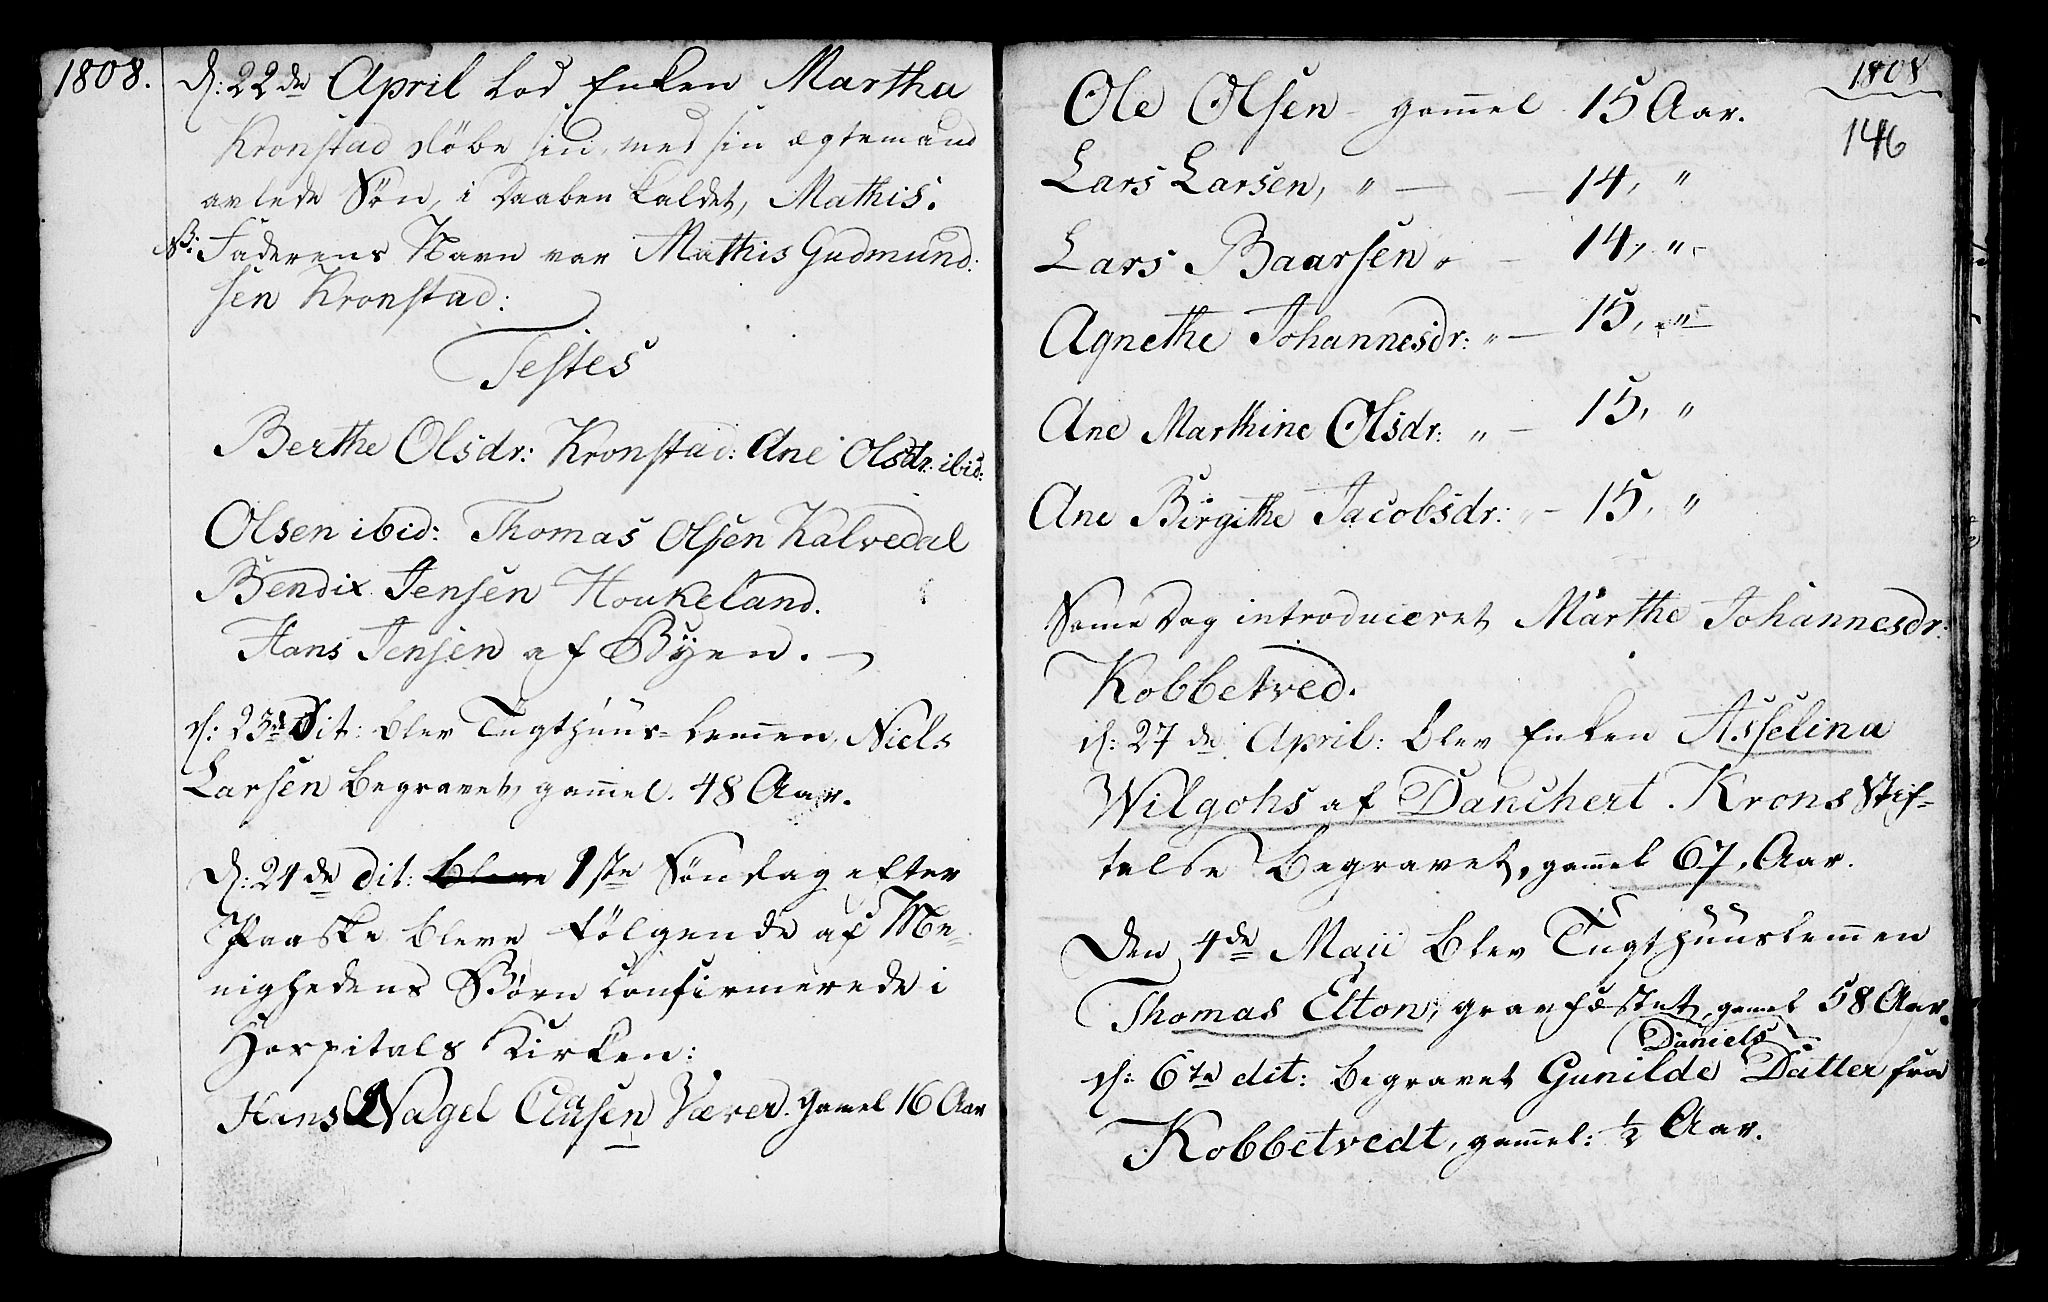 1808.
d: 22de April lod Enken Martha
Kronstad döbe sin, med sin ægtemand
avlede Sön, i Daaben kaldet, Mathis.
NB: Faderens Navn var Mathis Gudmund:
sen Kronstad:
Testes
Berthe Olsdr: Kronstad: Ane Olsdr: ibid:
Olsen ibid: Thomas Olsen Kalvedal
Bendix Jensen Houkeland.
Hans Jensen af Byen.
d: 23de Dit: blev Tugthuus-Lemmen, Niels
Larsen begravet, gammel. 48 Aar.
d: 24de dit: bleve 1ste Söndag efter
Paaske bleve fölgende af Me-
nighedens Börn confirmerede i
Hospitals Kirken:
Hans Nagel Clausen Værer. gamel 16 Aar
1808
146
Ole Olsen - gamel 15 Aar.
Lars Larsen, " — 14, "
Lars Baarsen " — 14, "
Agnethe Johannesdr: " — 15, "
Ane Marthine Olsdr: " — 15, "
Ane Birgithe Jacobsdr: " — 15, "
Same Dag introduceret Marthe Johannesdr:
Kobbetved.
d: 27de April: blev Enken Asselina
Wilgohs af Danchert Krons Stif-
telse begravet, gamel 67, Aar.
Den 4de Maii blev Tugthuuslemmen
Thomas Elton, gravfæstet, gamel 58 Aar.
Daniels
d: 6te dit: begravet Gunilde Datter fra
Kobbetvedt, gammel: ½ Aar.